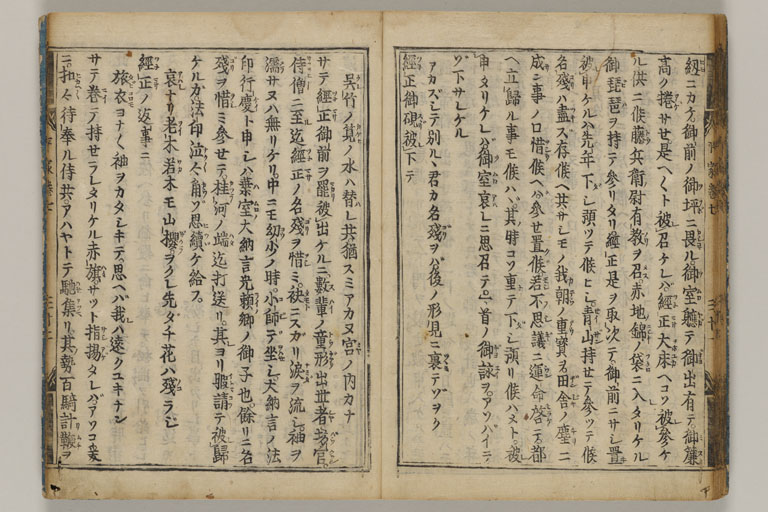 紐ニカケ御前ノ御坪ニ畏ル御室懸テ御出有テ御簾
高ク捲サセ是ヘ〳〵ト被召ケレハ經正大床ヘコソ被參ケ
ル供ニ候藤兵衛尉有教ヲ召赤地錦ノ袋ニ入タリケル
御琵琶ヲ持テ參リタリ經正是ヲ取次テ御前ニサシ置
被申ケルハ先年下シ預ツテ候ヒシ青山持セテ參ツテ候
名殘ハ盡ス存候ヘ共サシモノ我朝ノ重寶ヲ田舎ノ塵ニ
成ン事ノ口惜候ヘハ參セ置候若不思議ニ運命啓テ都
ヘ立歸ル事モ候ハヽ其時コソ重テ下シ預リ候ハメト被
申タリケレハ御室哀レニ思召テ一首ノ御詠ヲアソハイテ
ソ下サレケル
アカスシテ別ルヽ君カ名殘ヲハ後ノ形見ニ裹テソヲク
經正御硯被下テ
呉竹ノ筧ノ水ハ替レ共猶スミアカヌ宮ノ内カナ
サテ經正御前ヲ罷被出ケルニ數輩ノ童形出世者坊官
侍僧ニ至迄經正ノ名殘ヲ惜ミ袂ニスカリ涙ヲ流シ袖ヲ
濡サヌハ無リケリ中ニモ幼少ノ時小師テ坐シ大納言ノ法
印行慶ト申シハ葉室大納言光頼卿ノ御子也餘リニ名
殘ヲ惜ミ參セテ桂河ノ端迄打送リ其ヨリ暇請テ被歸
ケルカ法印泣々角ソ思續ケ給フ
哀ナリ老木若木モ山櫻ヲクレ先タチ花ハ殘ラシ
經正ノ返事ニ
旅衣ヨナ〳〵袖ヲカタシキテ思ヘハ我ハ遠クユキナン
サテ巻テ持セラレタリケル赤旗サツト指揚タレハアソコ爰
ニ扣ヘ待奉ル侍共アハヤトテ馳集リ其勢百騎計鞭ヲ